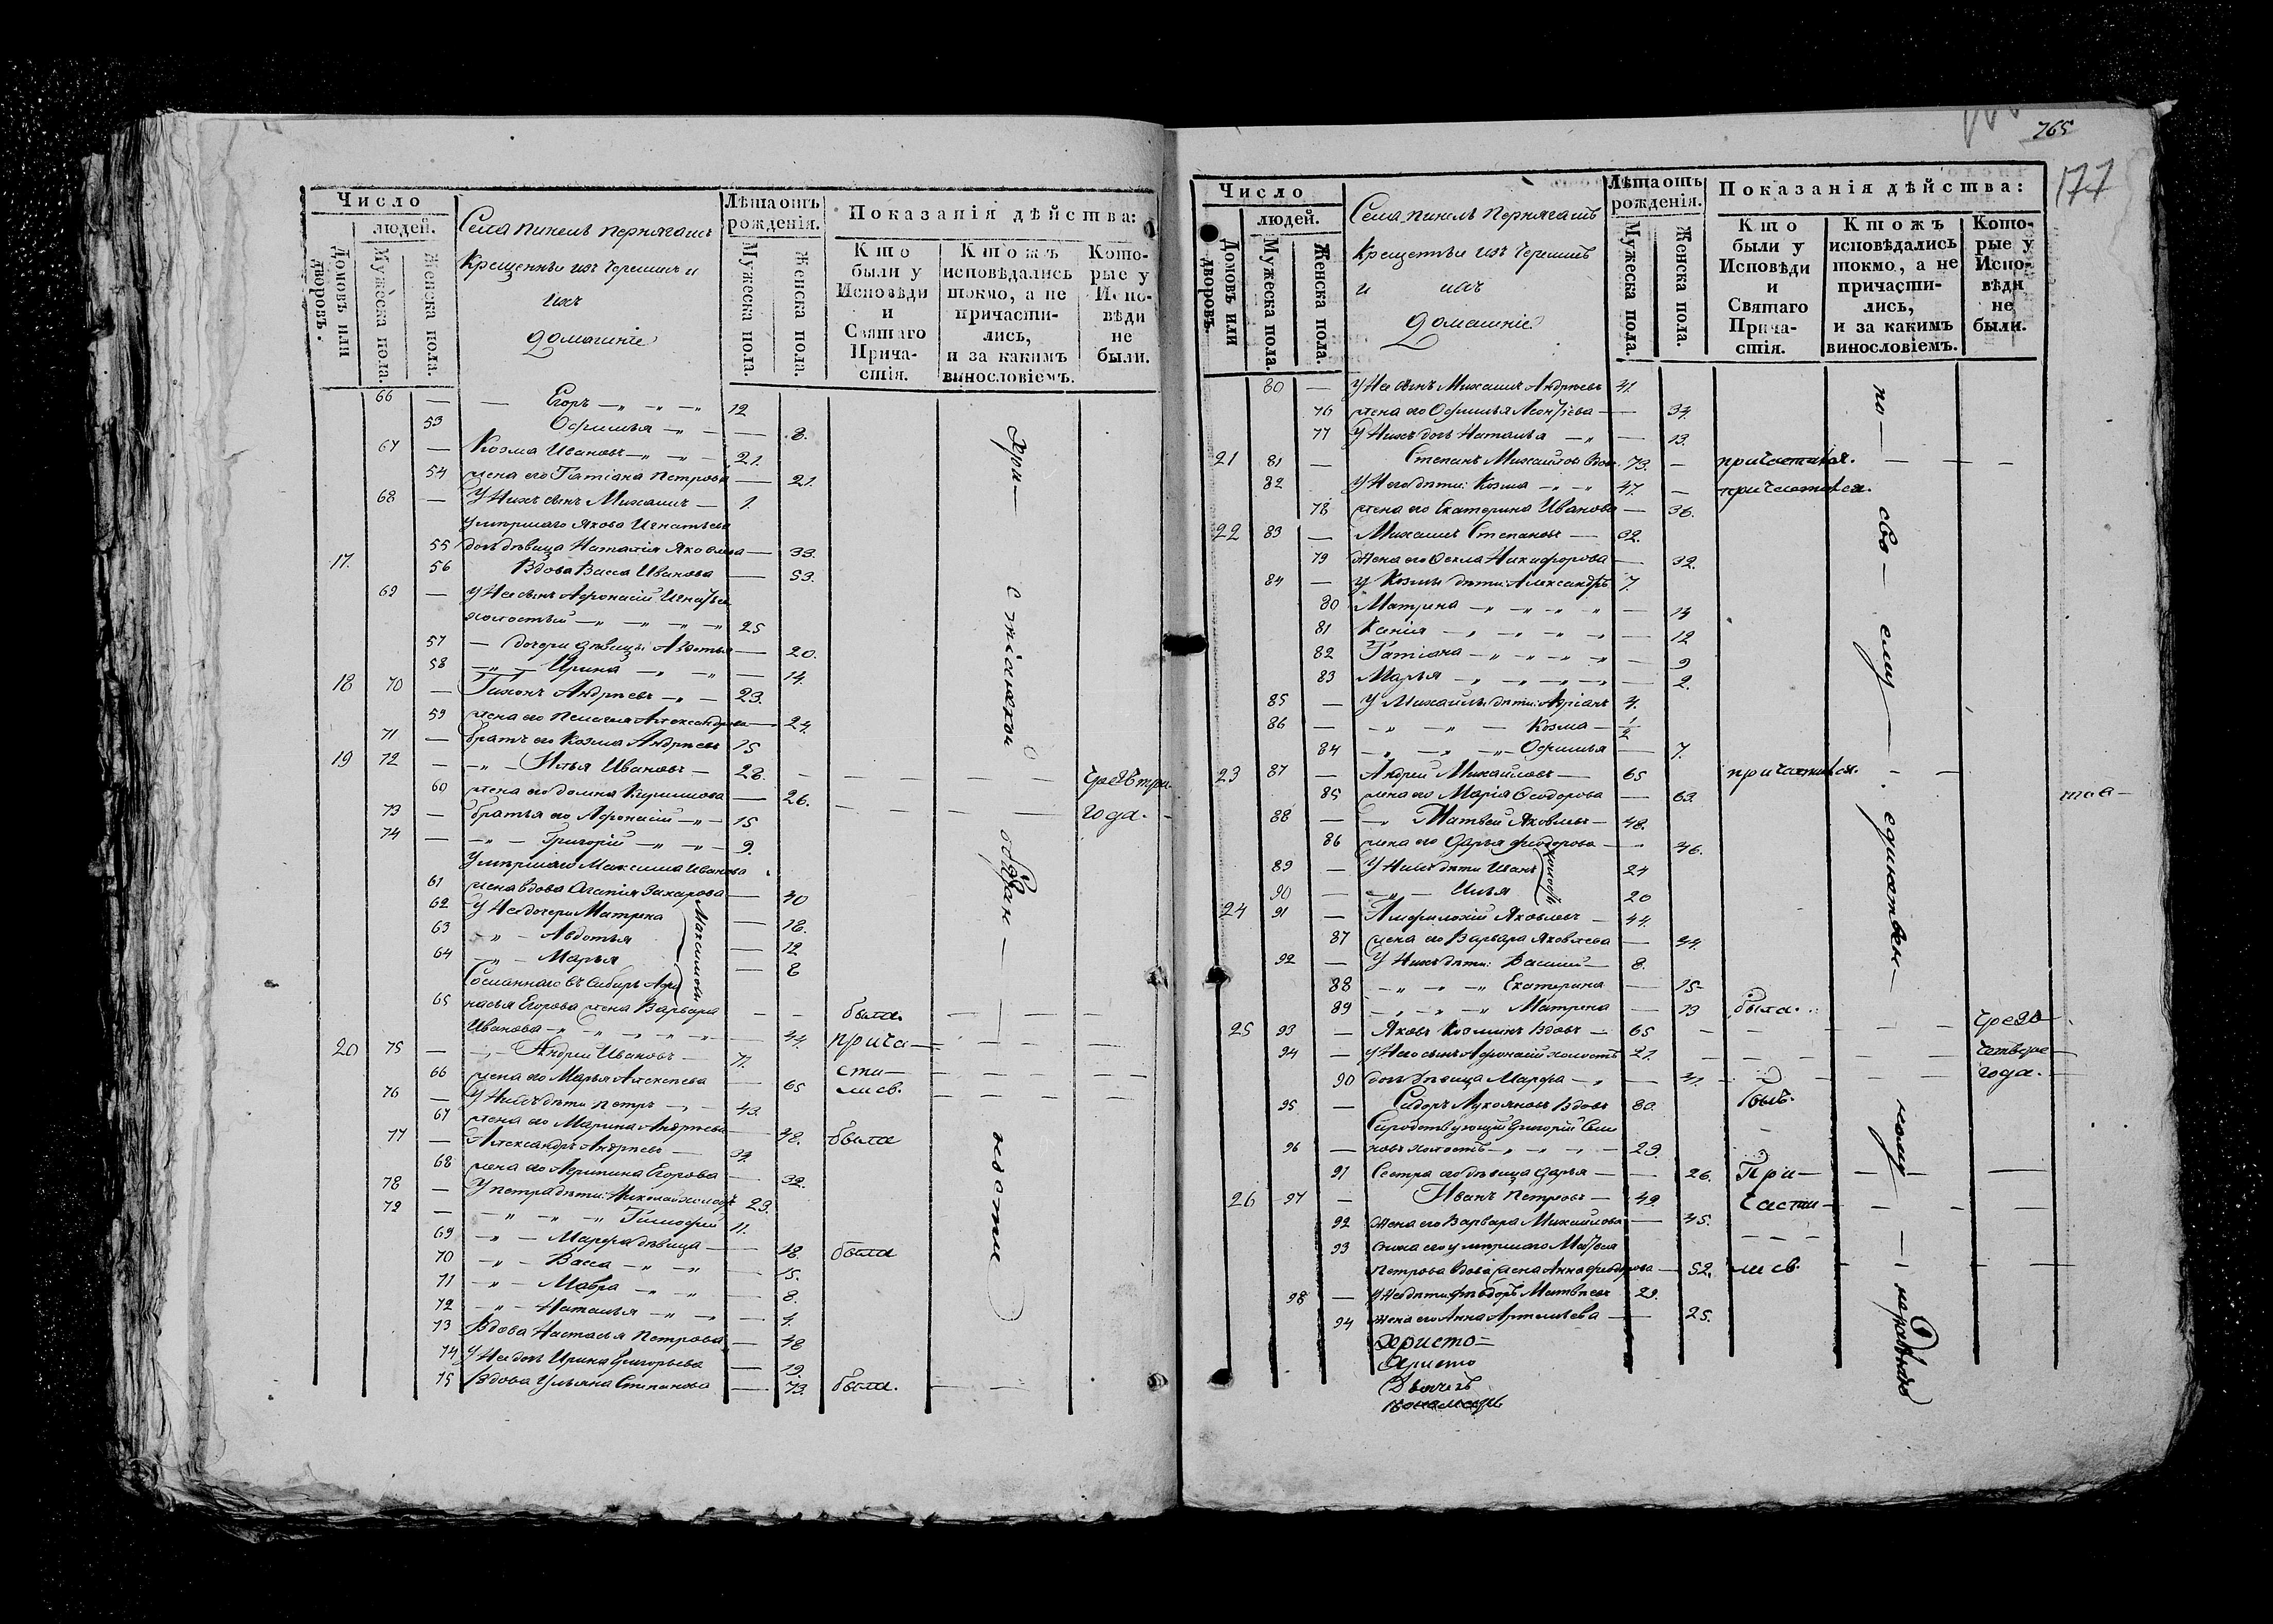 Число
людей.
Домовъ или дворовъ.
Мужеска пола.
Женска пола.
Села Пинель Пернягашъ
Крещенные изъ Черемисъ и
ихъ
домашніе
Лѣта отъ рожденія.
Мужеска пола.
Женска пола.
Показанія дѣйства:
Кто были у Исповѣди и Святаго Прича-стія.
Ктожъ исповѣдались токмо, а не причасти-лись, и за какимъ винословіемъ.
Кото-рые у Испо-вѣди не были.
66 — — Егоръ —„ —„ —„ 12
53 Офимья —„ — — 8.
67 — Козма Ивановъ —„ —„ — 21.
54 жена его Татіана Петрова — 21.
68 — У нихъ сынъ Михаилъ — 1.
Умершаго Якова Игнатьева
55 дочь дѣвица Наталія Яковлева — 33.
17. 56 Вдова Васса Иванова — 53.
69 — У Нея сынъ Афонасій Игнатьев
холостый —„ —„ —„ —„ 25
57 — дочери дѣвицы Авдотья — 20.
58 —„ — Ирина —„ —„ — 14.
18 70 — Тихонъ Андреевъ —„ — 23.
59 жена его Пелагея Александрова — 24.
71 — братъ его Козма Андреевъ 15
19 72 — —„ — Илья Ивановъ — 28. — — — — — чрезъ три
60 жена его Домна Кирилова — 26. — — — — года. —
73 — братья его Афонасій —„ — 15
74 — —„ — Григорій —„ —„ — 9.
Умершаго Максима Иванова
61 жена вдова Агапія Захарова — 40
62 У Нея дочери Матрена — 18.
63 —„ — Авдотья — 12
64 —„ — Марья — 8
Максимовы
Сосланнаго въ Сибирь Афо
65 насья Егорова жена Варвара — — была. — — —
Иванова —„ —„ —„ —„ —„ — 44. прича— — —
20 75 — —„— Андрей Ивановъ — 71. сти— — — — —
66 жена его Марья Алексеева — 65 лись. — — — —
76 — У Нихъ дѣти Петръ —„ — 43.
67 жена его Марина Андреева — 48. была
77 — Александръ Андреевъ — 34.
68 жена его Агрипина Егорова — 32.
78 — У Петра дѣти: Николай холостъ 23.
79 — —„ —„ —„ Тимофей 11.
69 —„ — Марфа дѣвица — 18. была
70 —„ — Васса —„ —„ — 15.
71 —„ — Мавра —„ —„ — 8.
72 —„ — Наталья —„ —„ — 4.
73 Вдова Настасья Петрова — 48
74 У Нея дочь Ирина Григорьева — 19.
75 Вдова Ульяна Степанова — 73. была. — —
765
177
Число
людей.
Домовъ или дворовъ.
Мужеска пола.
Женска пола.
Села Пинель Пернягашъ
Крещенные изъ Черемисъ
и ихъ
домашніе
Лѣта отъ рожденія.
Мужеска пола.
Женска пола.
Показанія дѣйства:
Кто были у Исповѣди и Святаго Прича-стія.
Ктожъ исповѣдались токмо, а не причасти-лись, и за какимъ винословіемъ.
Кото-рые у Испо-вѣди не были.
80 — У Нея сынъ Михаилъ Андреевъ 41.
76 жена его Офимья Леонтіева — 34.
77 У Нихъ дочь Наталья —„ — 13.
21 81 — Степанъ Михайловъ вдов 73. — причастился. — — —
82 У Него дѣти: Козма —„ —„ 47. — причастился.
78 жена его Екатерина Иванова — 36.
22 83 — Михаилъ Степановъ — 32.
79 жена его Фекла Никифорова — 32.
84 — У Козмы дѣти: Александръ 7.
80 Матрена —„ —„ —„ —„ — 14
81 Ксенія —„ —„ —„ —„ — 12
82 Татіана —„ —„ —„ —„ — 9
83 Марья —„ —„ —„ —„ — 2.
85 — У Михаилы дѣти: Адріанъ 4.
86 — —„ —„ — Козма — 1/2
84 —„ —„ —„ Офимья — 7.
23 87 — Андрей Михайловъ — 65 причастился. — —
85 жена его Марія Ѳеодорова — 63.
88 — —„ Матвей Яковлевъ — 48.
86 жена его Дарья Федорова — 46.
89 — У Нихъ дѣти Иванъ 24
90 — —„ — Илья 20
24 91 — Амфилохій Яковлевъ — 44.
87 жена его Варвара Яковлева — 44.
92 — У Нихъ дѣти: Василій — 8.
88 —„ —„ —„ Екатерина — 15
89 —„ —„ —„ Матрена — 13 была.
25 93 — Яковъ Козминъ вдовъ — 65 — — — — чрезъ
94 — У Него сынъ Афонасій холостъ 21. — — — — четверо
90 дочь дѣвица Марфа —„ — 31. — — — — года. —
95 — Сидоръ Лукояновъ вдовъ 80. былъ.
Сиротствующій Григорій Семе
96 — новъ холостъ —„ —„ — 29.
91 Сестра его дѣвица Дарья — 26. При— — — —
26 97 — Иванъ Петровъ — 49. части— — — —
92 жена его Варвара Михайлова — 45. — — —
93 Снока его умершаго Матвея
Петрова вдова жена Анна Федорова — 52. лись. — — —
98 — У Нея дѣти: Федоръ Матвеевъ 29.
94 жена его Анна Артемьева — 25.